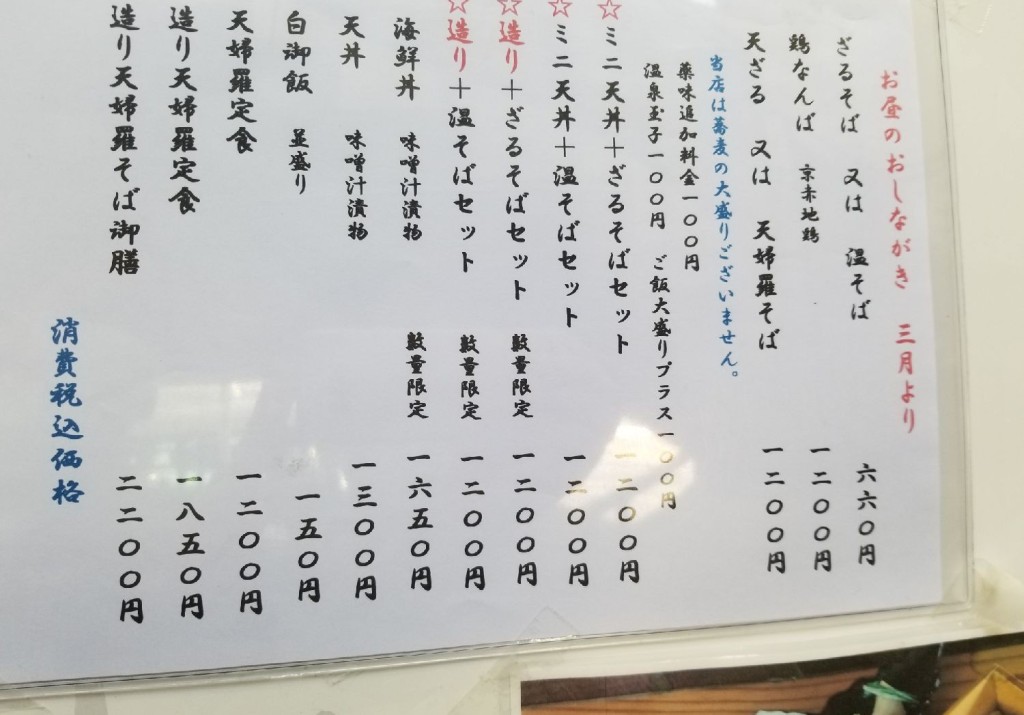 お昼のおしながき 三月より
ざるそば 又は 温そば 六六〇円
鶏なんば 京赤地鶏 一二〇〇円
天ざる 又は 天婦羅そば 一二〇〇円
当店は蕎麦の大盛りございません。
薬味追加料金一〇〇円
温泉玉子一〇〇円 ご飯大盛りプラス一〇〇円
☆ミニ天丼＋ざるそばセット 一二〇〇円
☆ミニ天丼＋温そばセット 一二〇〇円
☆造り＋ざるそばセット 数量限定 一二〇〇円
☆造り＋温そばセット 数量限定 一二〇〇円
海鮮丼 味噌汁漬物 数量限定 一六五〇円
天丼 味噌汁漬物 一三〇〇円
白御飯 並盛り 一五〇円
天婦羅定食 一二〇〇円
造り天婦羅定食 一八五〇円
造り天婦羅そば御膳 二二〇〇円
消費税込価格